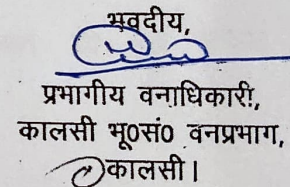 भवदीय,
प्रभागीय वनाधिकारी,
कालसी भू0सं0 वनप्रभाग,
कालसी।